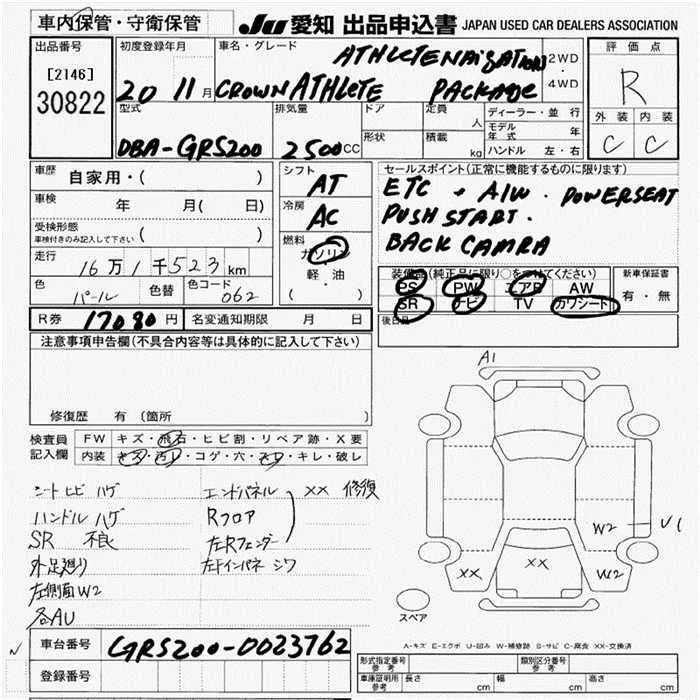 車内保管・守衛保管
JU 愛知 出品申込書 JAPAN USED CAR DEALERS ASSOCIATION
出品番号
[2146]
30822
初度登録年月
20 11月
車名・グレード
ATHLETE NAIGATION
CROWN ATHLETE PACKAGE
2WD
・
4WD
評価点
R
外装 内装
C C
型式
DBA-GRS200
排気量
2500CC
ドア
形状
定員
人
積載
kg
ディーラー・並行
モデル年式 年
ハンドル 左・右
車歴
自家用・( )
車検 年 月( 日)
受検形態
車検付きのみ記入して下さい ( )
走行
16万1千523km
色
パール
色替
色コード
062
シフト
AT
冷房
AC
燃料
ガソリン
軽・油
( )
セールスポイント(正常に機能するものに限ります)
ETC + A/W . POWERSEAT
PUSH START.
BACK CAMRA
装備品(純正品に限り○をつけてください)
PS PW エアB AW
SR ナビ TV カワシート
新車保証書
有・無
後日品
R券 17080円 名変通知期限 月 日
注意事項申告欄(不具合内容等は具体的に記入して下さい)
修復歴 有(箇所
検査員
記入欄
FW キズ・飛石・ヒビ割・リペア跡・X要
内装 キズ・汚レ・コゲ・穴・スレ・キレ・破レ
シートヒビ ハゲ
ハンドル ハゲ
SR 不良
外足廻り
左側面W2
各AU
エンドパネル
Rフロア
左Rフェンダー
XX 修復
左Fインパネ シワ
A1
W2
U1
XX
XX
W2
スペア
A-キズ E-エクボ U-凹み W-補修跡 S-サビ C-腐食 XX-交換済
車台番号 GRS200-0023762
登録番号
形式指定番号
参考
類別区分番号
参考
車庫証明用
参考
長さ cm 幅 cm 高さ cm